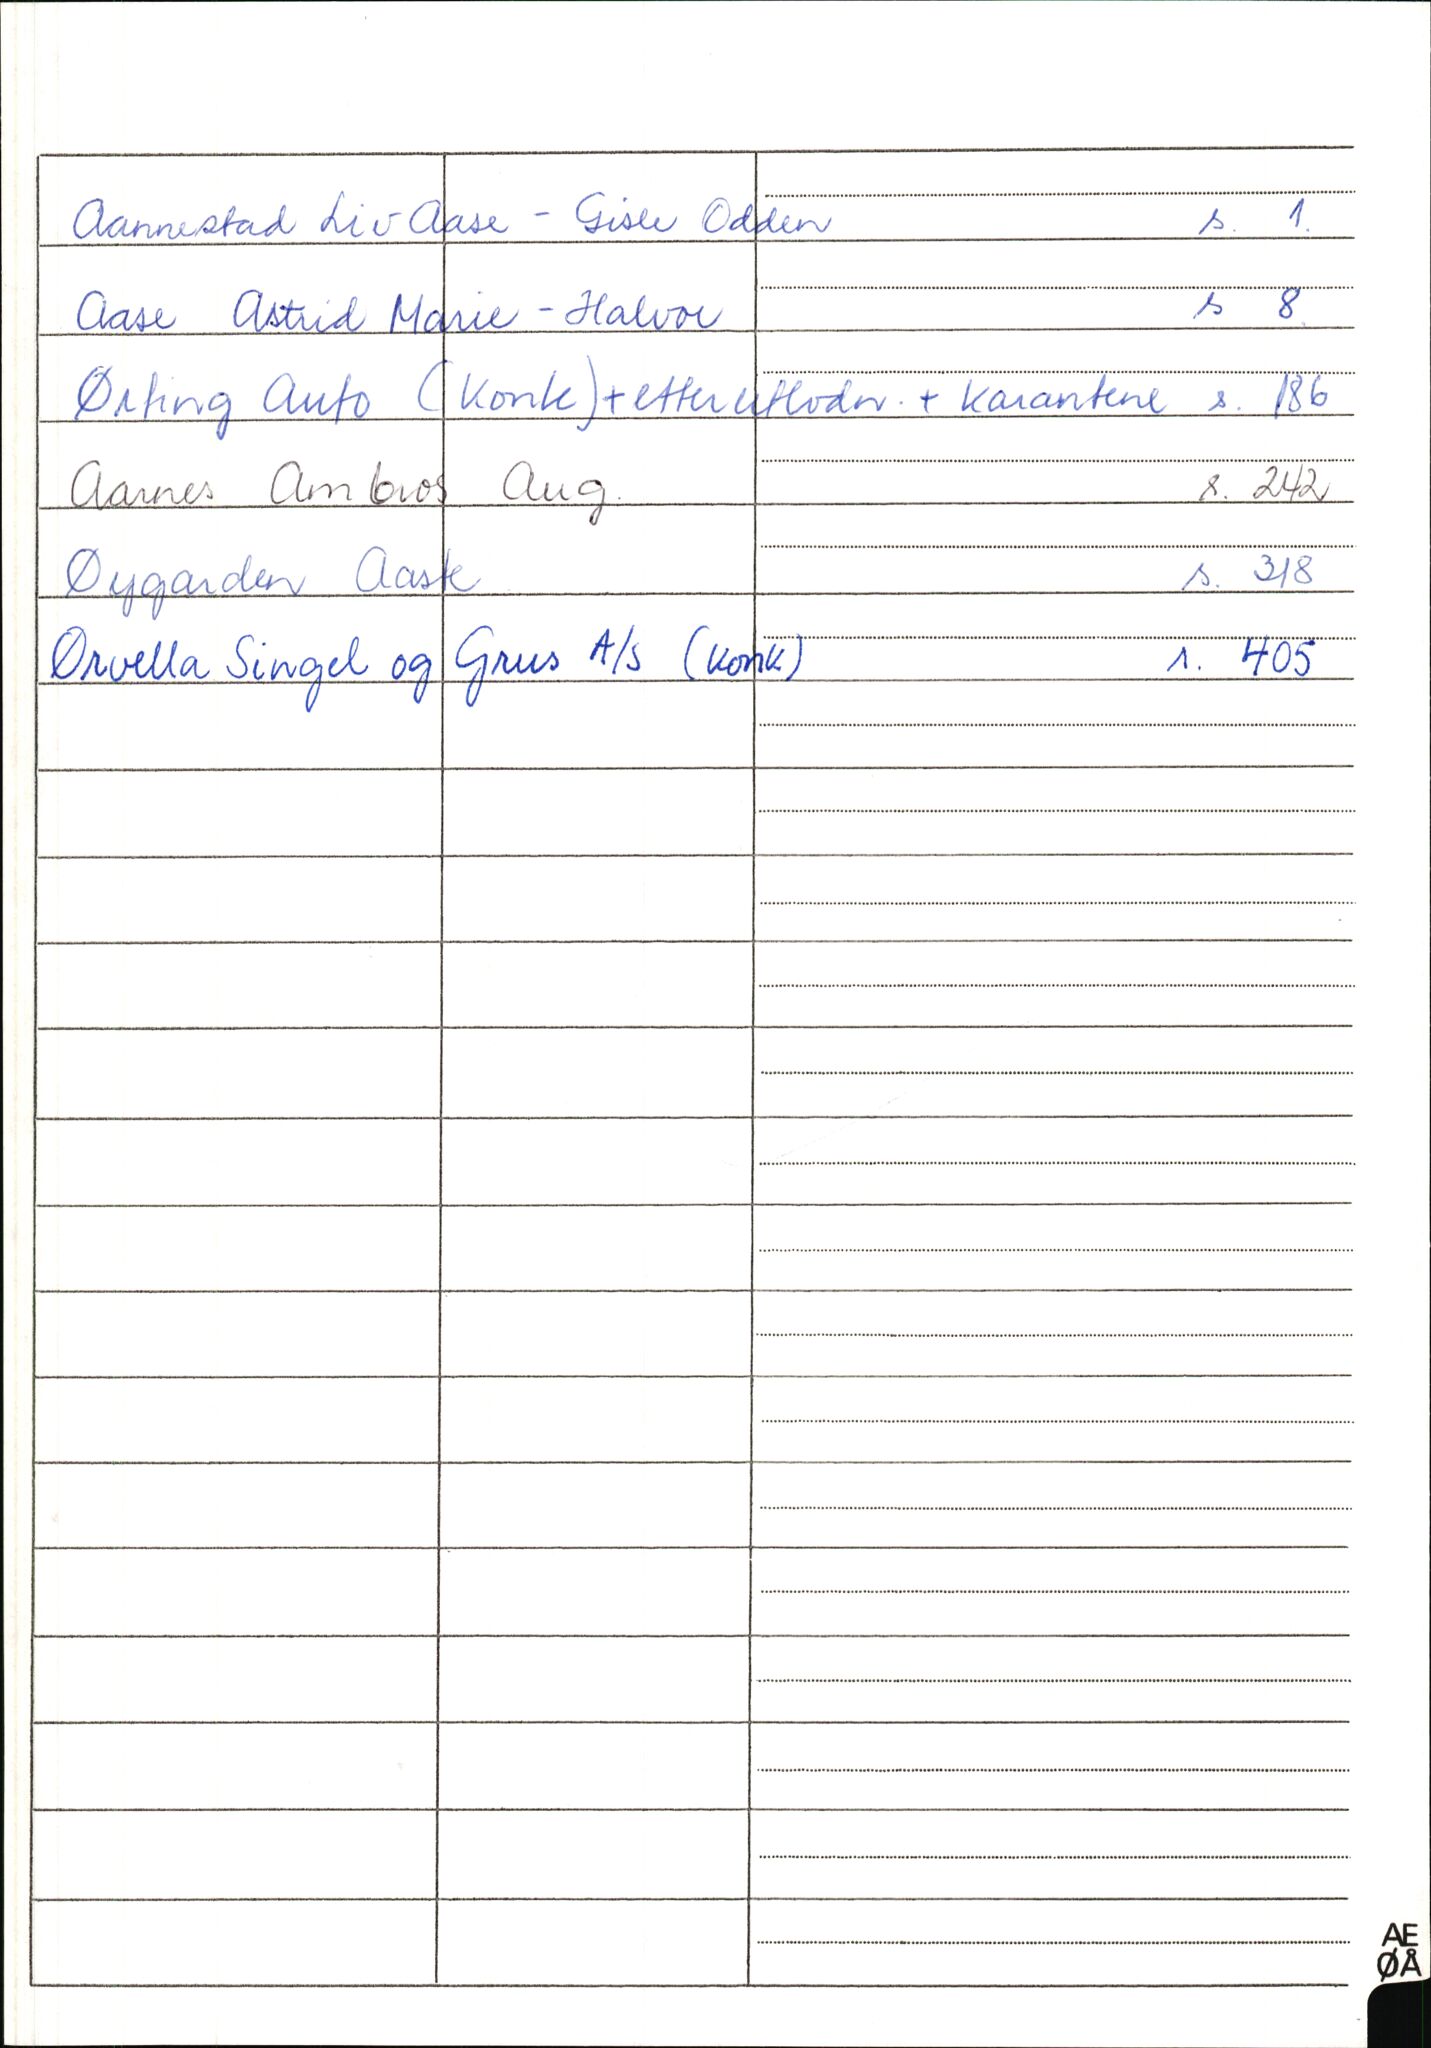 Aannestad Liv Aase - Gisle Odden s. 1.
Aase Astrid Marie - Halvor s 8.
Ørting Auto (Konk) + etterutlodn. + Karantene s. 186
Aarnes Ambros Aug. s. 242
Øygarden Aask s. 318
Ørvella Singel og Grus A/S (Konk) s. 405
AE
ØÅ